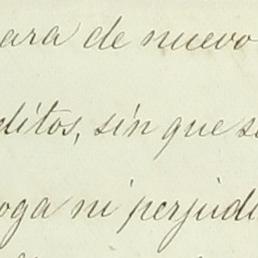 ara de nuevo
ditos, sin que s
oga ni perjudi